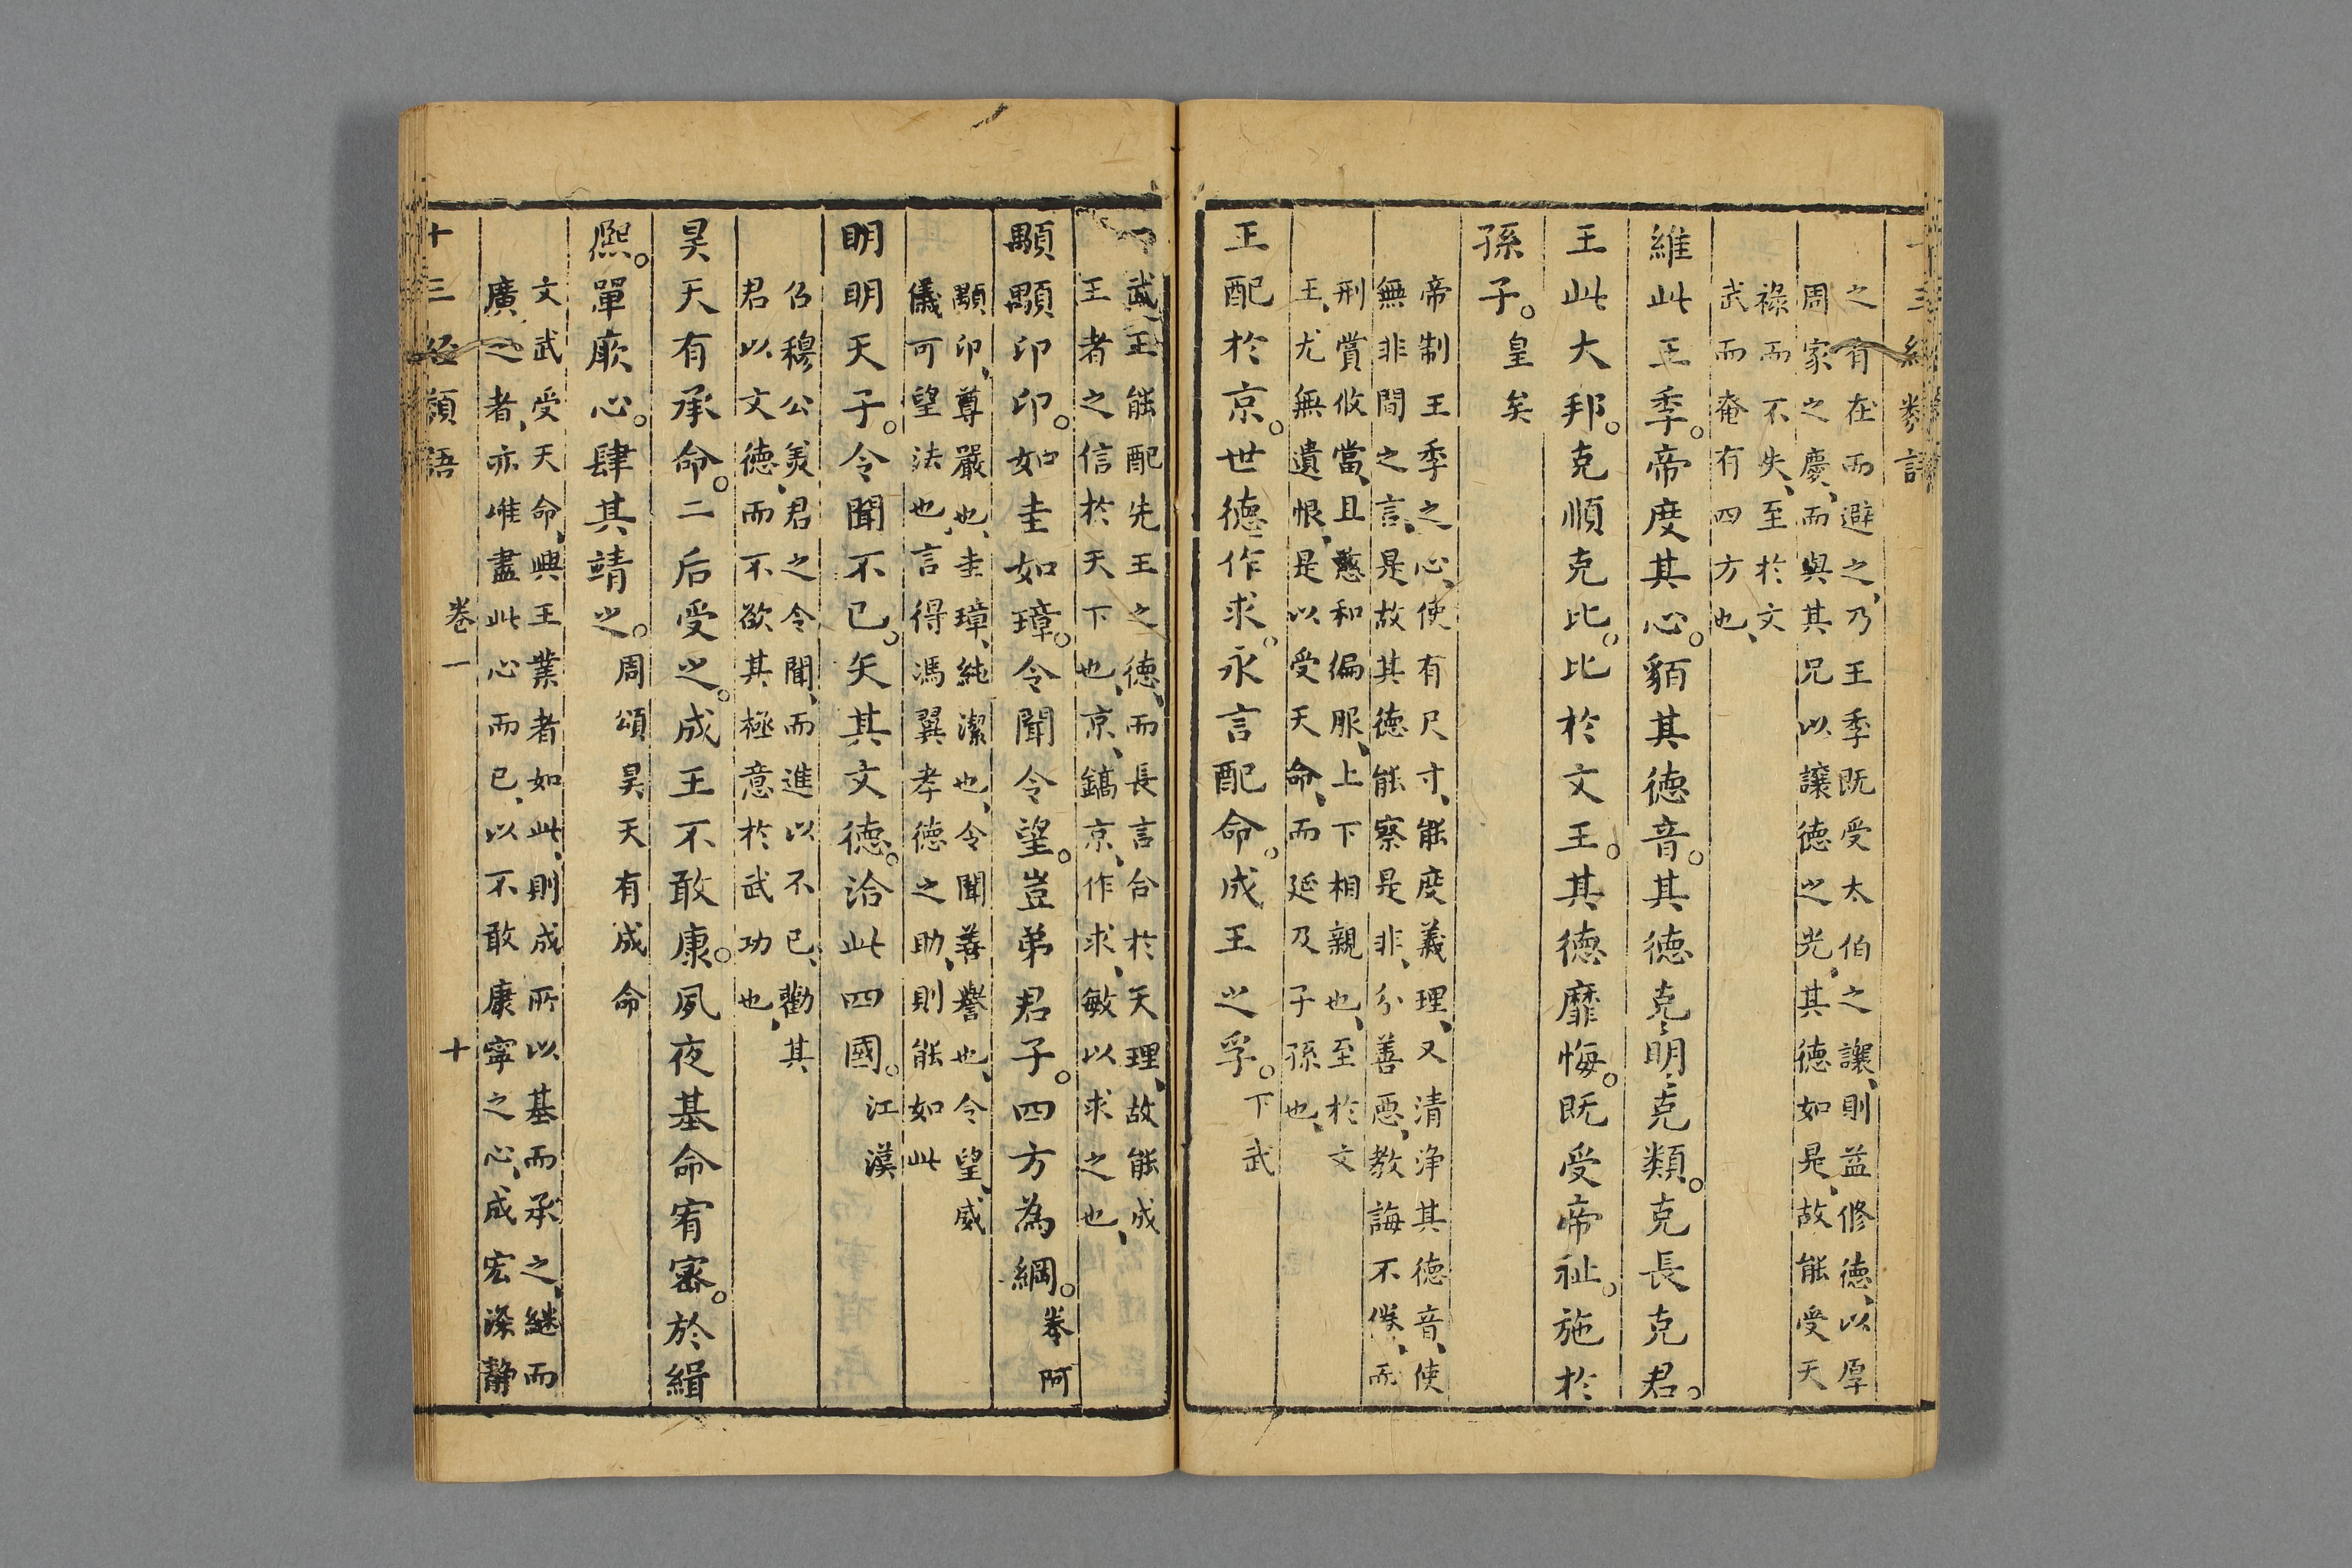 十三經類語
之有在而避之、乃王季既受太伯之讓、則益修德、以厚
周家之慶、而與其兄以讓德之光、其德如是、故能受天
祿而不失、至於文
武而奄有四方也、
維此王季。帝度其心。貊其德音。其德克明克類。克長克君。
王此大邦。克順克比。比於文王。其德靡悔。既受帝祉。施於
孫子。皇矣
帝制王季之心、使有尺寸、能度義理、又清淨其德音、使
無非間之言、是故其德能察是非、分善惡、教誨不倦、而
刑賞攸當、且慈和徧服、上下相親也、至於文
王、尤無遺恨、是以受天命、而延及子孫也、
王配於京。世德作求。永言配命。成王之孚。下武
武王能配先王之德、而長言合於天理、故能成
王者之信於天下也、京、鎬京、作求、敏以求之也、
顒顒卬卬。如圭如璋。令聞令望。豈弟君子。四方為綱。卷阿
顒卬、尊嚴也、圭璋、純潔也、令聞善譽也、令望、威
儀可望法也、言得馮翼孝德之助、則能如此
明明天子。令聞不已。矢其文德。洽此四國。江漢
召穆公美君之令聞、而進以不已、勸其
君以文德、而不欲其極意於武功也、
昊天有承命。二后受之。成王不敢康。夙夜基命宥密。於緝
熙。單厥心。肆其靖之。周頌昊天有成命
文武受天命、興王業者如此、則成所以基而承之、繼而
廣之者、亦唯盡此心而已、以不敢康寧之心、成宏深靜
十三經類語 卷一 十